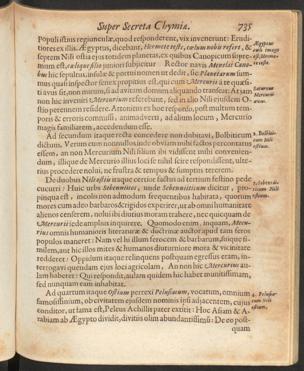 Super Secreta Chymiæ. 735
Populi istius regiunculæ, quod responderent, vix invenerunt: Erudi-
tiores ex illis, Ægyptus, dicebant, Hermete teste, cœlum nobis refert, &
septem Nili ostia ejus tendem planetas, ex quibus Canopicum supre-
mum est, cæteque situ juniori subjicitur. Rector navis Mercurii Cano-
bus hic sepultus, insulæ & portui nomen ut dedit, sic Planetarum sum-
mus quasi inspector senex propitius est, qui cum Mercurio à te quæsiti-
tus sit, non mirum, si ad avitum domum aliquando transeat: At jam
non hic inveniri Mercurium referebant, sed in alio Nili ejusdem O-
stio perennem residere. Attonitus ex hoc responso, post multum tem-
poris & erroris commissi, animadverti, ad alium locum, Mercurio
magis familiarem, accedendum esse.
Ad secundum itaque recta contendere non dubitavi, Bolbiticum
dictum. Verum cum nonnullos inde obviam mihi factos percontatus
essem, an non Mercurium Nili filium ibi vidissent mihi convenien-
dum, illique de Mercurio illius loci se nihil scire respondissent, ulte-
rius procedere nolui, ne frustra & tempus & sumptus tererem.
De duobus Nili ostiis itaque certior factus ad tertium festino pede
cucurri: Huic urbs Sebennitus, unde Sebenniticum dicitur, pro-
pinqua est, incolis non admodum frequentibus habitata, quorum
mores cum adeo barbaros & rigidos experirer, ut ab omni humanitate
alienos censerem, nolui ibi diutius moram trahere, nec quicquam de
Mercurii sede amplius inquirere. Quomodo enim, inquam, Mercu-
rius omnis humanioris literaturæ & doctrinæ auctor apud tam feros
populos maneret: Nam vel hi illum ferocem & barbarum, suique si-
milem, aut hic illos mites & humanos diuturniore mora & vicinitate
redderet: Oppidum itaque relinquens postquam egressus eram, in-
terrogavi quendam ejus loci agricolam, An non hic Mercurius au-
lam haberet: Qui respondit, aulam quidem hic habet munitissimam,
sed nunquam eam inhabitat.
Ad quartum itaque Ostium perrexi Pelusiacum, vocatum, omnium
famosissimum, ob civitatem ejusdem nominis ipsi adjacentem, cujus
conditor, ut fama est, Peleus Achilli pater extitit: Hoc Asiam & A-
rabiam ab Ægypto dividit, divitiis olim abundantissimis: De eo post-
quam